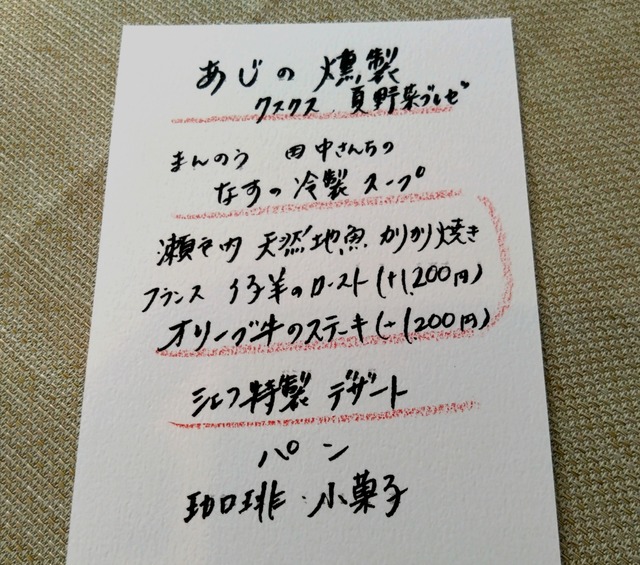 あじの 燻製
クスクス、夏野菜ブレゼ
まんのう 田中さんちの
なすの 冷製 スープ
瀬戸内 天然地魚 かりかり焼き
フランス 仔羊のロースト (+1,200円)
オリーブ牛のステーキ (+1,200円)
シェフ特製 デザート
パン
珈琲・小菓子